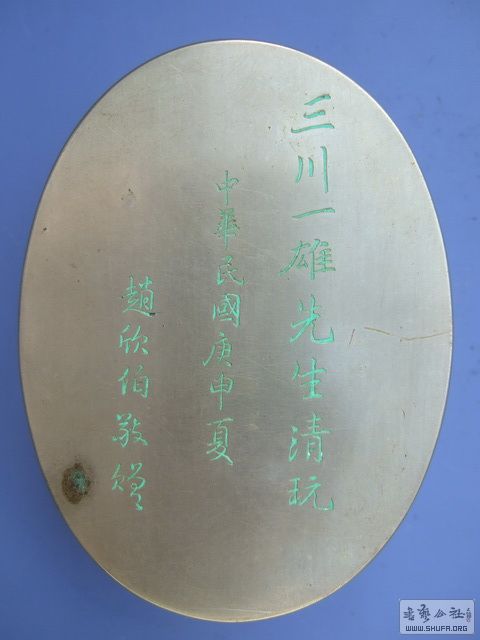 三川一雄先生清玩
中華民國庚申夏
趙欣伯敬贈
书艺公社
WWW.SHUFA.ORG